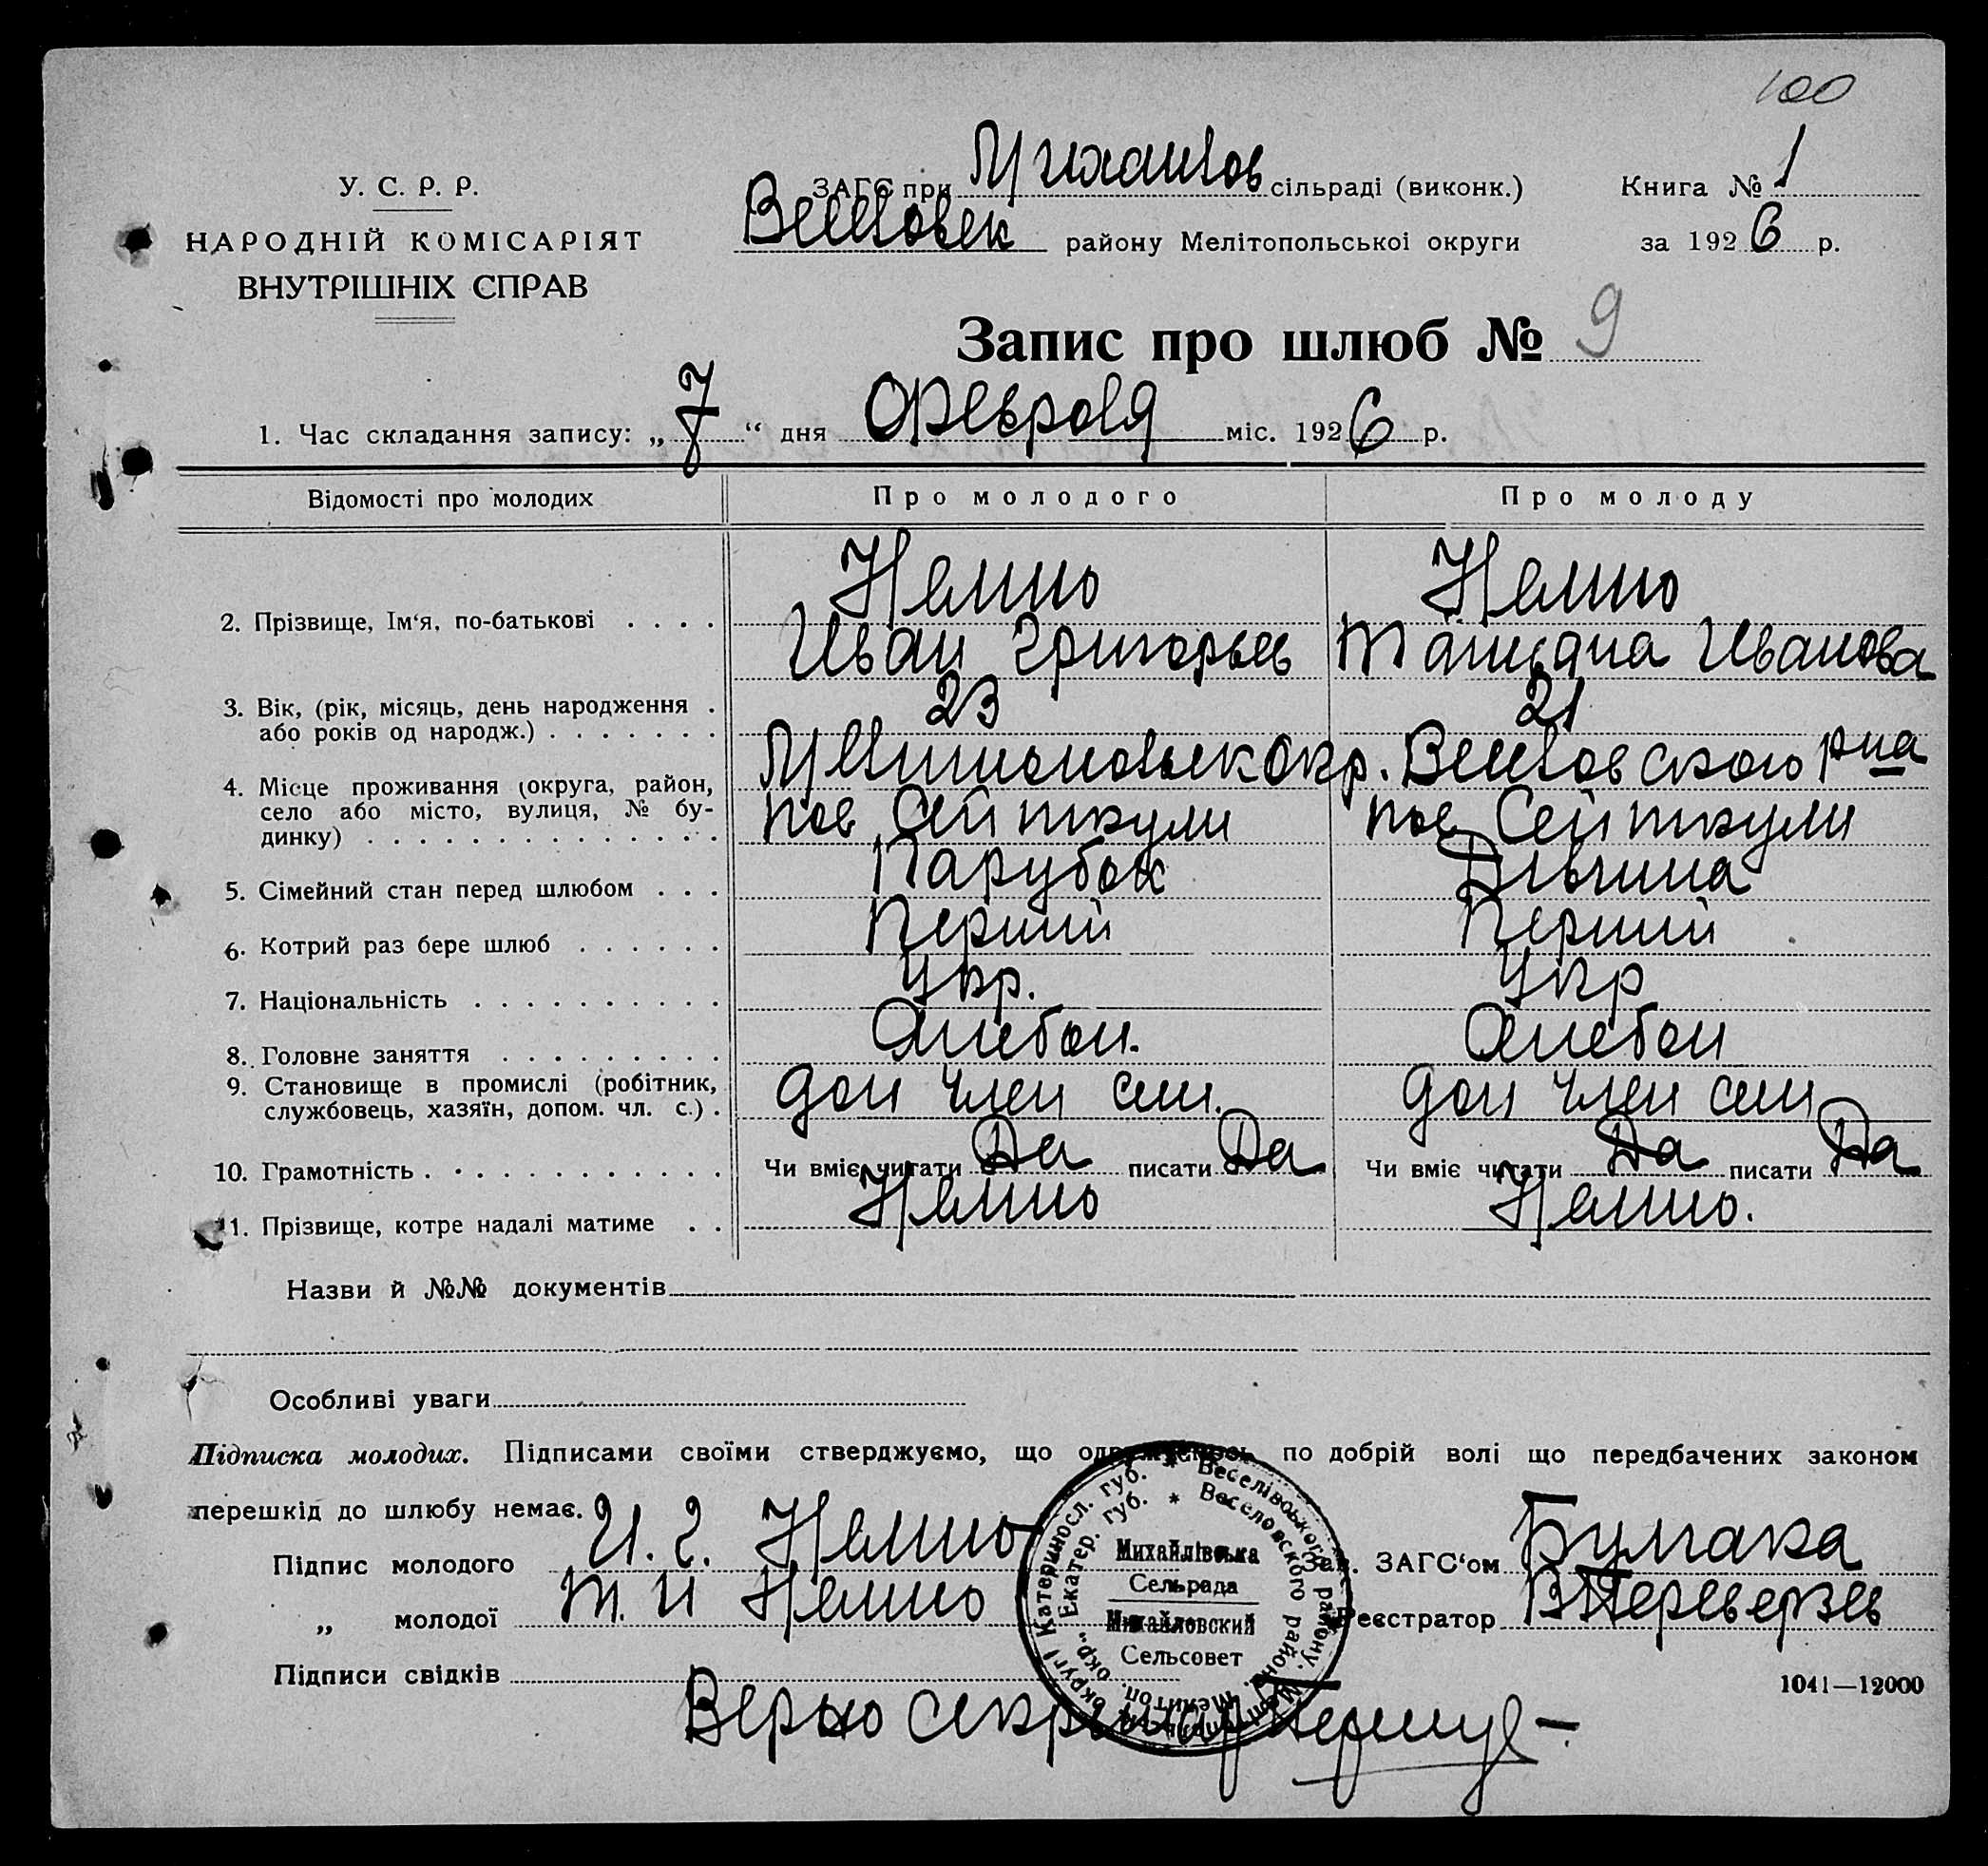 100
У. С. Р. Р.
НАРОДНІЙ КОМІСАРІЯТ
ВНУТРІШНІХ СПРАВ
ЗАГС при Михайлов сільраді (виконк.) Книга № 1
Веселовск району Мелітопольської округи за 1926 р.
Запис про шлюб № 9
1. Час складання запису: „7“ дня Февраля міс. 1926 р.
Відомості про молодих Про молодого Про молоду
2. Прізвище, Ім‘я, по-батькові . . . .
Иван Григорьев Татяна Иванова
3. Вік, (рік, місяць, день народження . або років од народж.) . . . . . . . 23 21
4. Місце проживання (округа, район, село або місто, вулиця, № будинку) . . . . . . . . . . . . . . .
Мелитопольск Окр. Веселовского рна
пос Сейткули пос Сейткули
5. Сімейний стан перед шлюбом . . . Парубок Дівчина
6. Котрий раз бере шлюб . . . . . . Перший Перший
7. Національність . . . . . . . . . . Укр. Укр
8. Головне заняття . . . . . . . . .
9. Становище в промислі (робітник, службовець, хазяїн, допом. чл. с.) . доп член сем. доп член сем
10. Грамотність . . . . . . . . . . . . Чи вміє читати Да писати Да Чи вміє читати Да писати Да
11. Прізвище, котре надалі матиме . .
Назви й №№ документів
Особливі уваги
Підписка молодих. Підписами своїми стверджуємо, що одружуємось по добрій волі що передбачених законом
перешкід до шлюбу немає.
Підпис молодого И. Г. Зав. ЗАГС‘ом
„ молодої Т. И Реєстратор В Переверзев
Підписи свідків
1041—12000
Верно секретар
Катериносл. губ. * Веселівського району. Мелітопільськ. округі
Екатер. губ. * Веселовского района. Мелитоп. окр.
Михайлівська
Сельрада
Михайловский
Сельсовет